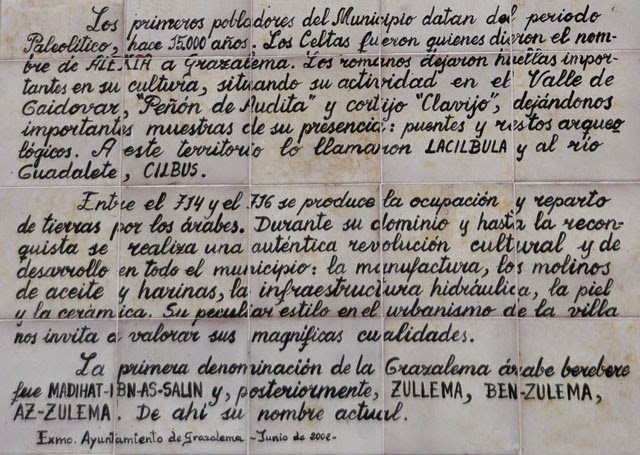 Los primeros pobladores del Municipio datan del periodo
Paleolítico, hace 15.000 años. Los Celtas fueron quienes dieron el nom-
bre de ALEXIA a Grazalema. Los romanos dejaron huellas impor-
tantes en su cultura, situando su actividad en el Valle de
Gaidovar, "Peñón de Audita" y cortijo "Clavijo", dejándonos
importantes muestras de su presencia: puentes y restos arqueo
lógicos. A este territorio lo llamaron LACILBULA y al río
Guadalete, CILBUS.
Entre el 714 y el 716 se produce la ocupación y reparto
de tierras por los árabes. Durante su dominio y hasta la recon-
quista se realiza una auténtica revolución cultural y de
desarrollo en todo el municipio: la manufactura, los molinos
de aceite y harinas, la infraestructura hidráulica, la piel
y la cerámica. Su peculiar estilo en el urbanismo de la villa
nos invita a valorar sus magníficas cualidades.
La primera denominación de la Grazalema árabe berebere
fue MADIHAT-IBN-AS-SALIN y, posteriormente, ZULLEMA, BEN-ZULEMA,
AZ-ZULEMA. De ahí su nombre actual.
Exmo. Ayuntamiento de Grazalema -Junio de 2002-